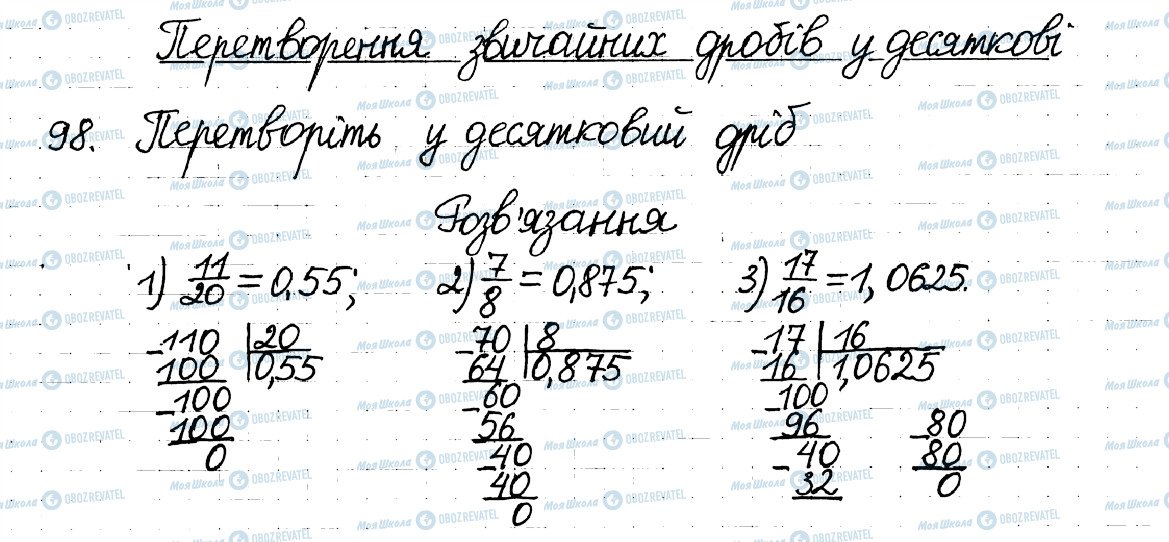 Перетворення звичайних дробів у десяткові
98. Перетворіть у десятковий дріб
Розв'язання
1) 11/20 = 0,55; 2) 7/8 = 0,875; 3) 17/16 = 1,0625.
-110 | 20
100 | 0,55
-100
100
0
-70 | 8
64 | 0,875
-60
56
-40
40
0
-17 | 16
16 | 1,0625
-100
96
-40
32
-80
80
0